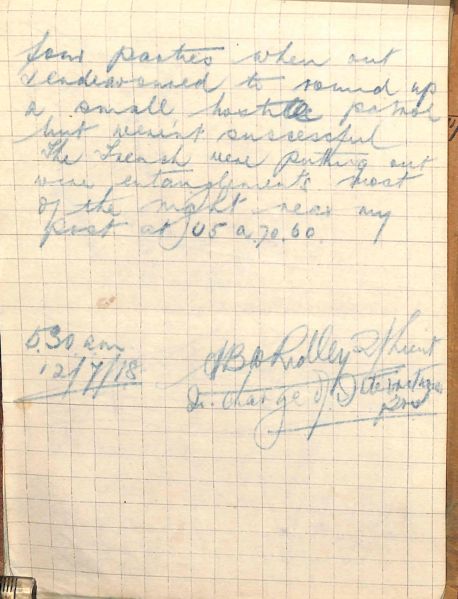 four parties when out
& endeavoured to round up
a small hostile patrol
but weren't successful
The French were putting out
wire entanglements most
of the night near my
post at U5 a.70.60.
5.30 am
12/7/18
Ridley 2/Lieut
In charge of International
Post